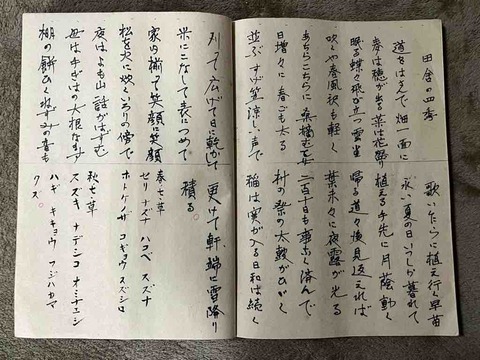 田舎の四季
道をはさんで 畑一面に
麦は穂が出る菜は花盛り
眠る蝶々飛び立つ雲雀
吹くや春風袂も軽く
あちらこちらに桑摘む乙女
日増々に春ごも太る
並ぶすげ笠涼し声で
歌いながらに植え行く早苗
永い夏の日いつしか暮れて
植える手先に月蔭動く
帰る道々後見返えれば
葉末々に夜露が光る
二百十日も事なく済んで
村の祭の太鼓がひびく
稲は実が入る日和は続く
刈って広げて日に乾かして
米にこなして表つめて
家内揃って笑顔に笑顔
松を火に炊くろりの傍で
夜はよも山話がはずむ
母は手ぎはの大根なます
棚の餅ひくねずみの音も
更けて軒端に雪降り
積る。
春七草
セリ ナズナ ハコベ スズナ
ホトケノザ コギョウ スズシロ
秋七草
ススキ ナデシコ オミナエシ
ハギ キキョウ フジバカマ
クズ。